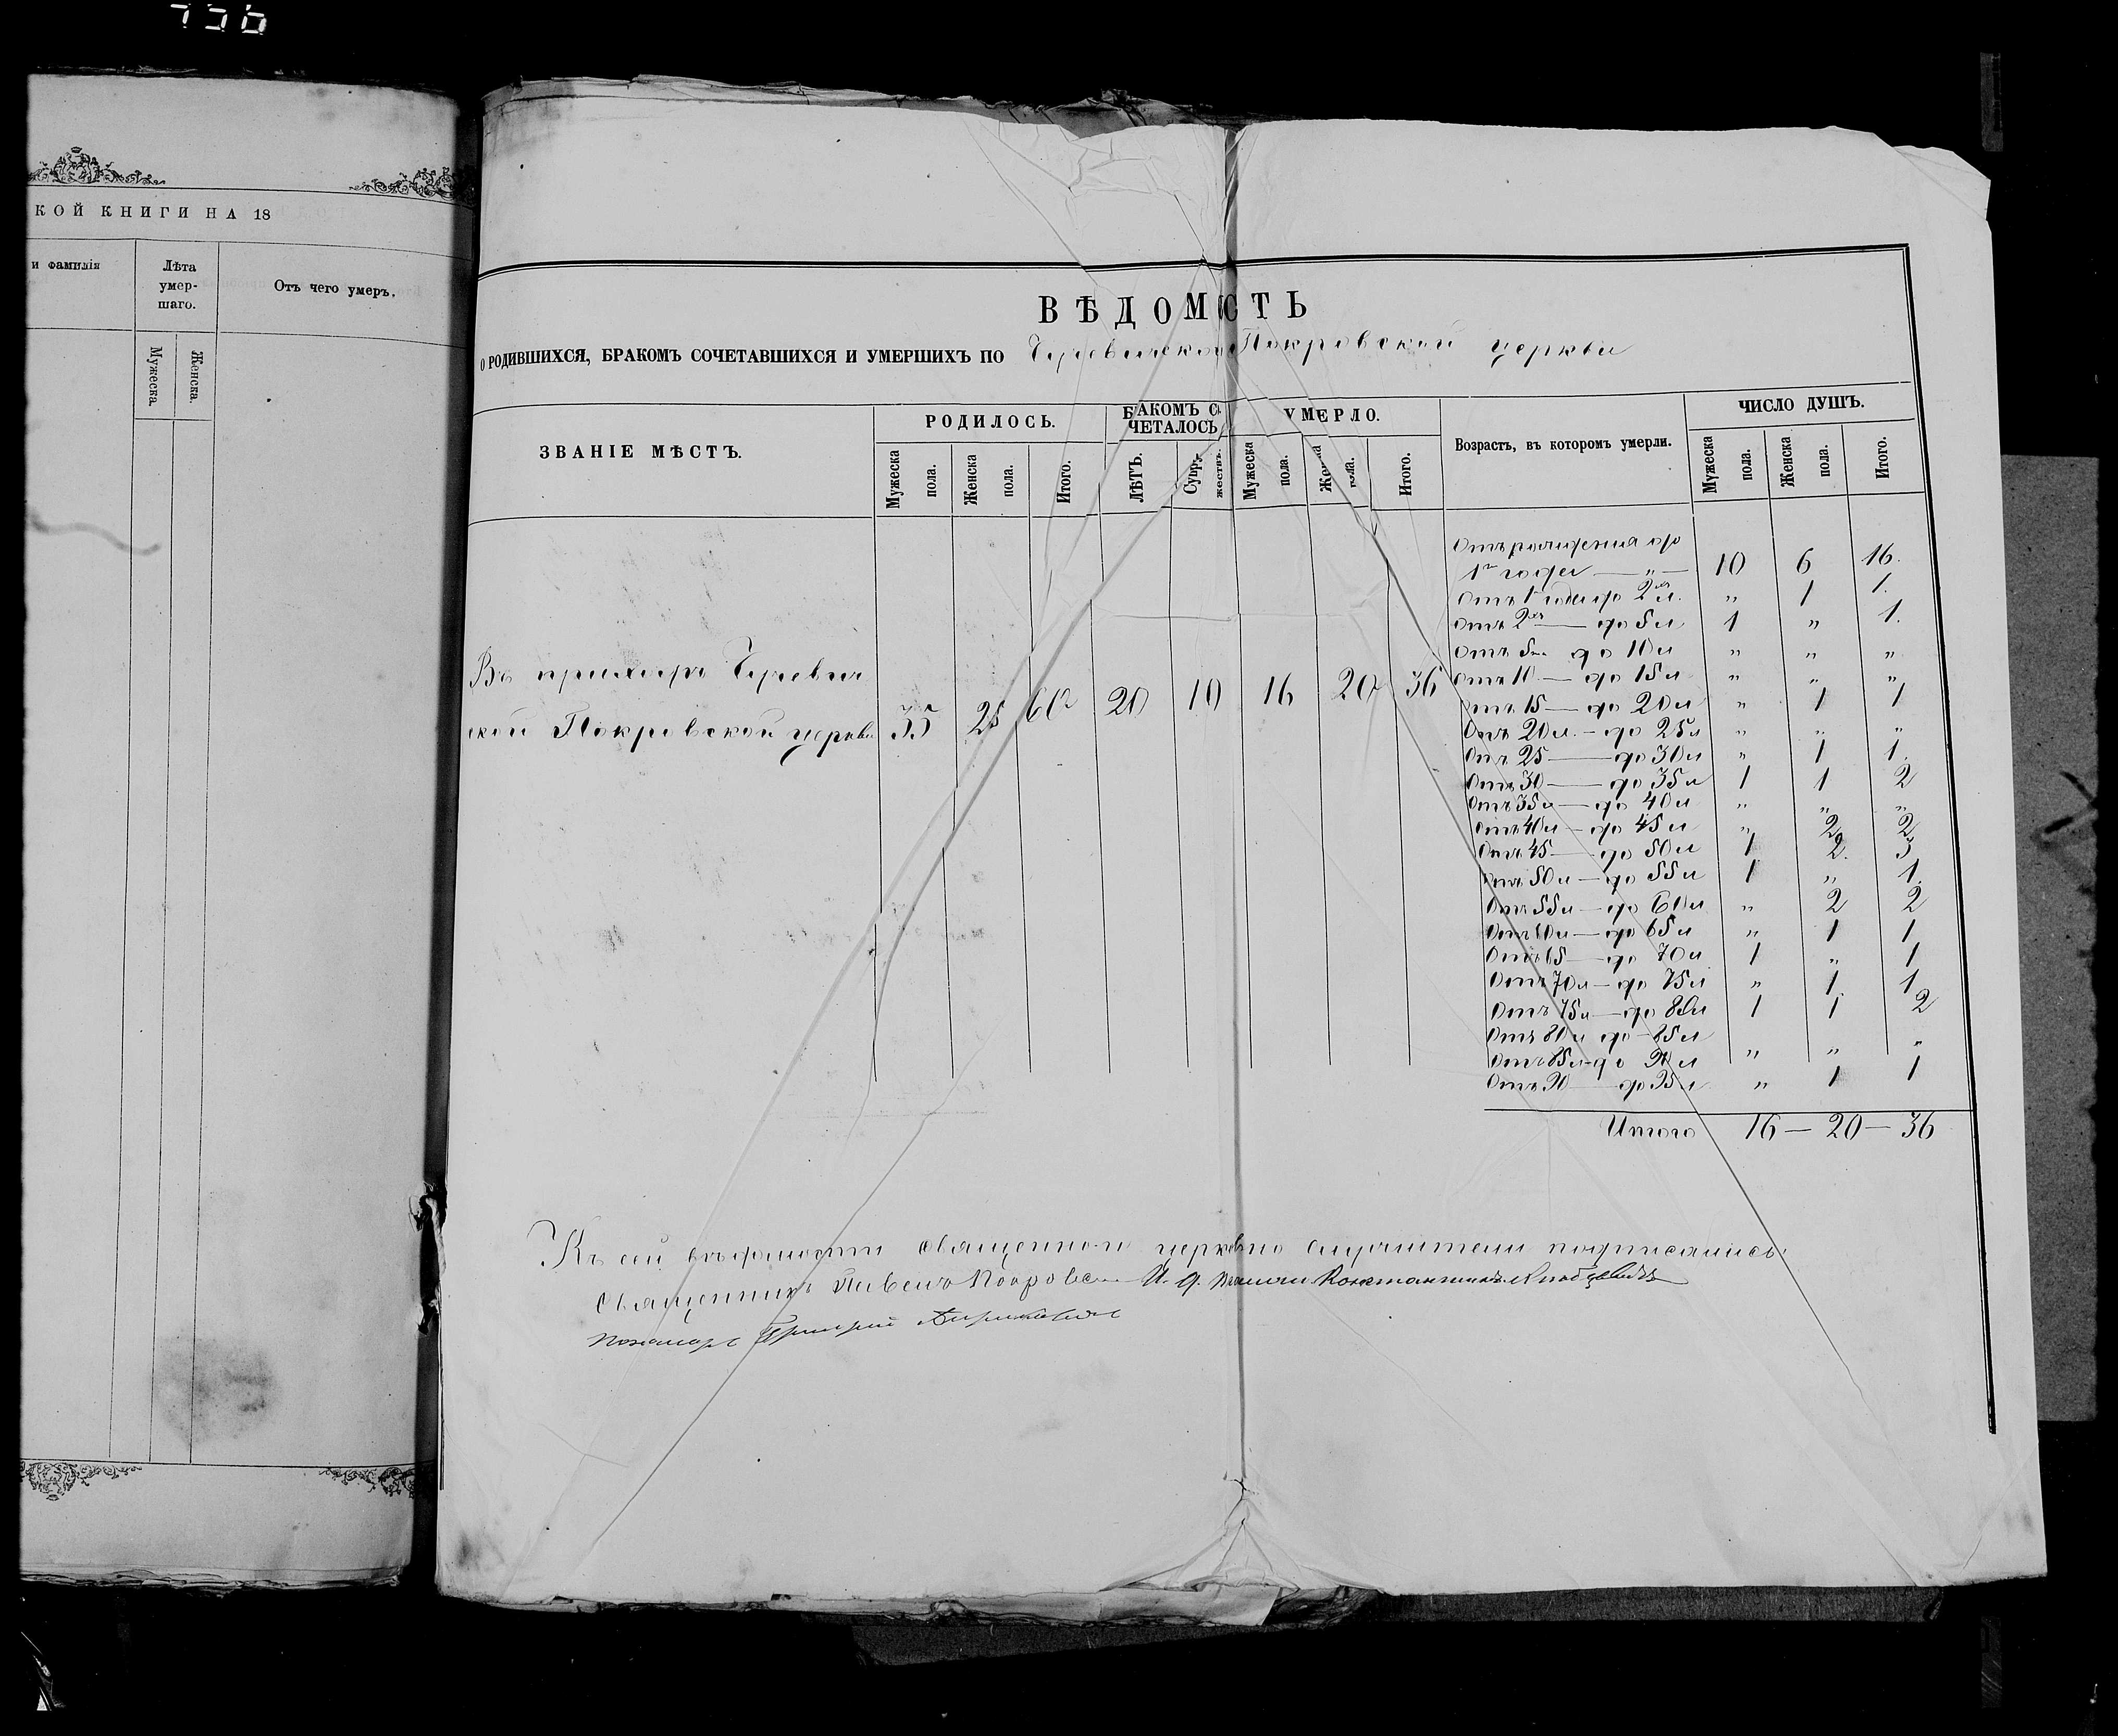 736
КОЙ КНИГИ НА 18
и фамилія
Лѣта умер-шаго.
Отъ чего умеръ.
Мужеска.
Женска.
ВѢДОМОСТЬ
О РОДИВШИХСЯ, БРАКОМЪ СОЧЕТАВШИХСЯ И УМЕРШИХЪ ПО Чучевичской Покровской церкви
ЗВАНІЕ МѢСТЪ.
РОДИЛОСЬ.
БРАКОМЪ СО-ЧЕТАЛОСЬ
УМЕРЛО.
Возрастъ, въ которомъ умерли.
ЧИСЛО ДУШЪ.
Мужеска пола.
Женска пола.
Итого.
ЛѢТЪ.
Супружествъ.
Мужеска пола.
Женска пола.
Итого.
Мужеска пола.
Женска пола.
Итого.
Въ приходѣ
ской Покровской церкви 35 25 60 20 10 16 20 36
Отъ рожденія до
1го года — „ — 10 6 16.
Отъ 1 года до 2 л. „ 1 1.
Отъ 2хъ — до 5 л 1 „ 1.
Отъ 5 до 10 л „ „ „
Отъ 10 — до 15 л „ „ „
Отъ 15 — до 20 л „ 1 1
Отъ 20 л. — до 25 л „ „ „
Отъ 25 — до 30 л „ 1 1.
Отъ 30 — до 35 л 1 1 2
Отъ 35 л — до 40 л „ „ „
Отъ 40 л — до 45 л „ 2 2
Отъ 45 — до 50 л 1 2. 3
Отъ 50 л — до 55 л 1 „ 1.
Отъ 55 л — до 60 л „ 2 2
Отъ 60 л — до 65 л „ 1 1
Отъ 65 — до 70 л 1 „ 1
Отъ 70 л — до 75 л „ 1. 1
Отъ 75 л — до 80 л 1 1 2
Отъ 80 л до 85 л
Отъ 85 л до 90 л „ „ „
Отъ 90 — до 95 л „ 1 1
Итого 16 — 20 — 36
Къ сей вѣдомости священно и церковно служители подписались:
Священникъ Павелъ И. д. Константинъ
Пономарь Григорій